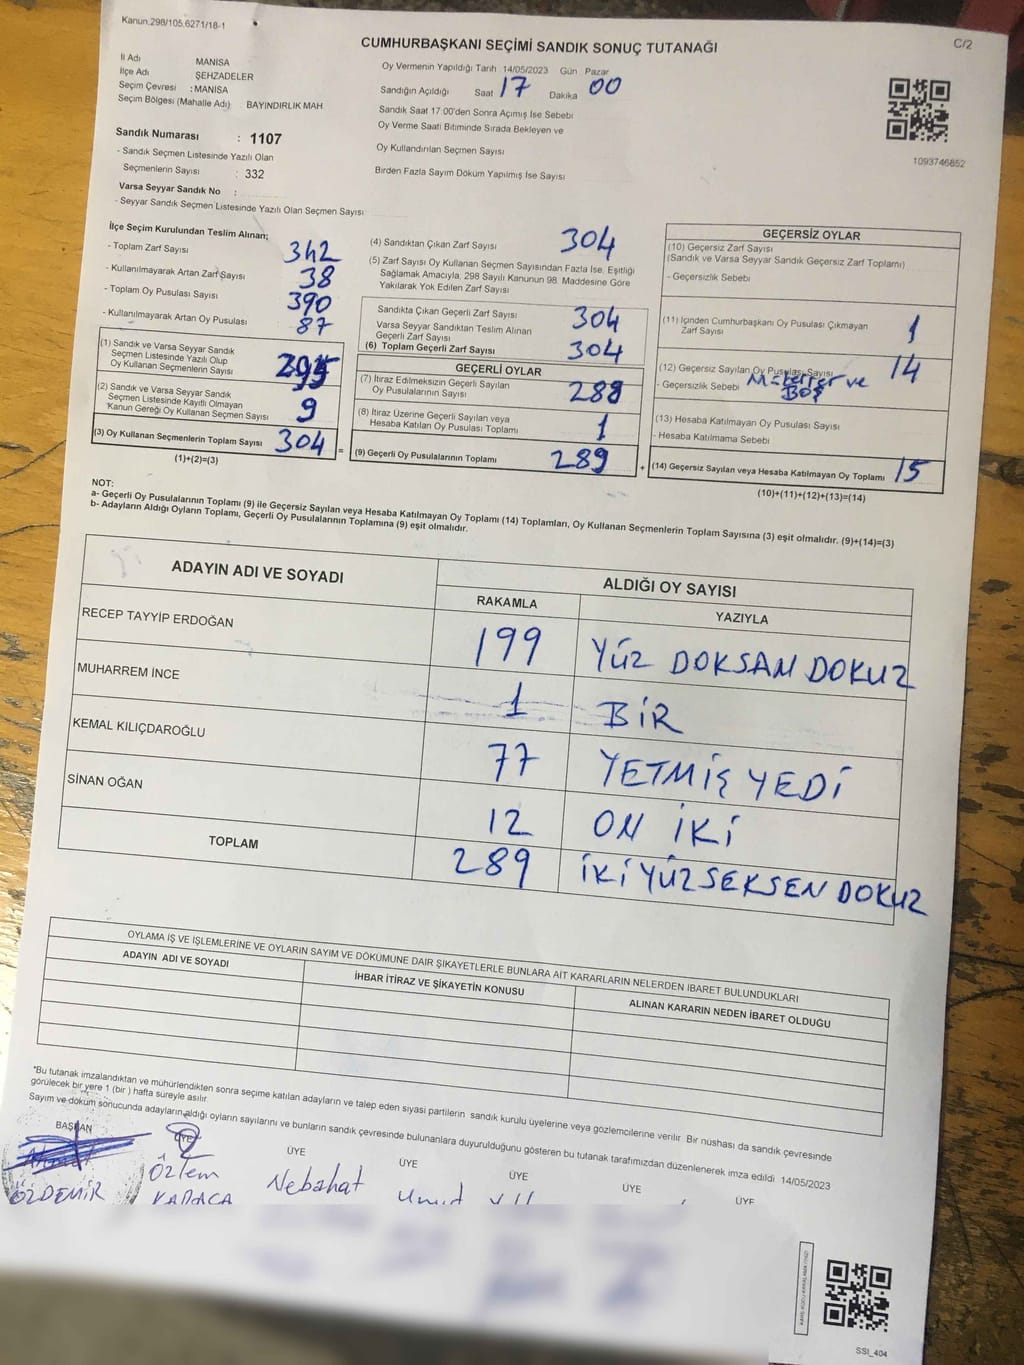 Kanun.298/105,6271/18-1
C/2
CUMHURBAŞKANI SEÇİMİ SANDIK SONUÇ TUTANAĞI
İl Adı MANİSA
İlçe Adı ŞEHZADELER
Seçim Çevresi : MANİSA
Seçim Bölgesi (Mahalle Adı) BAYINDIRLIK MAH
Sandık Numarası : 1107
- Sandık Seçmen Listesinde Yazılı Olan
Seçmenlerin Sayısı : 332
Varsa Seyyar Sandık No :
- Seyyar Sandık Seçmen Listesinde Yazılı Olan Seçmen Sayısı
Oy Vermenin Yapıldığı Tarih 14/05/2023 Gün Pazar
Sandığın Açıldığı Saat 17 Dakika 00
Sandık Saat 17:00'den Sonra Açımış İse Sebebi
Oy Verme Saati Bitiminde Sırada Bekleyen ve
Oy Kullandırılan Seçmen Sayısı
Birden Fazla Sayım Döküm Yapılmış İse Sayısı
1093746852
İlçe Seçim Kurulundan Teslim Alınan;
- Toplam Zarf Sayısı 342
- Kullanılmayarak Artan Zarf Sayısı 38
- Toplam Oy Pusulası Sayısı 390
- Kullanılmayarak Artan Oy Pusulası 87
(1) Sandık ve Varsa Seyyar Sandık
Seçmen Listesinde Yazılı Olup
Oy Kullanan Seçmenlerin Sayısı
(2) Sandık ve Varsa Seyyar Sandık
Seçmen Listesinde Kayıtlı Olmayan
Kanun Gereği Oy Kullanan Seçmen Sayısı 9
(3) Oy Kullanan Seçmenlerin Toplam Sayısı 304 =
(1)+(2)=(3)
(4) Sandıktan Çıkan Zarf Sayısı 304
(5) Zarf Sayısı Oy Kullanan Seçmen Sayısından Fazla İse, Eşitliği
Sağlamak Amacıyla, 298 Sayılı Kanunun 98. Maddesine Göre
Yakılarak Yok Edilen Zarf Sayısı
Sandıkta Çıkan Geçerli Zarf Sayısı 304
Varsa Seyyar Sandıktan Teslim Alınan
Geçerli Zarf Sayısı
(6) Toplam Geçerli Zarf Sayısı 304
GEÇERLİ OYLAR
(7) İtiraz Edilmeksizin Geçerli Sayılan
Oy Pusulalarının Sayısı 288
(8) İtiraz Üzerine Geçerli Sayılan veya
Hesaba Katılan Oy Pusulası Toplamı 1
(9) Geçerli Oy Pusulalarının Toplamı 289 +
GEÇERSİZ OYLAR
(10) Geçersiz Zarf Sayısı
(Sandık ve Varsa Seyyar Sandık Geçersiz Zarf Toplamı)
- Geçersizlik Sebebi
(11) İçinden Cumhurbaşkanı Oy Pusulası Çıkmayan
Zarf Sayısı 1
(12) Geçersiz Sayılan Oy Pusulası Sayısı 14
- Geçersizlik Sebebi ve
BOŞ
(13) Hesaba Katılmayan Oy Pusulası Sayısı
- Hesaba Katılmama Sebebi
(14) Geçersiz Sayılan veya Hesaba Katılmayan Oy Toplamı 15
(10)+(11)+(12)+(13)=(14)
NOT:
a- Geçerli Oy Pusulalarının Toplamı (9) ile Geçersiz Sayılan veya Hesaba Katılmayan Oy Toplamı (14) Toplamları, Oy Kullanan Seçmenlerin Toplam Sayısına (3) eşit olmalıdır. (9)+(14)=(3)
b- Adayların Aldığı Oyların Toplamı, Geçerli Oy Pusulalarının Toplamına (9) eşit olmalıdır.
ADAYIN ADI VE SOYADI ALDIĞI OY SAYISI
RAKAMLA YAZIYLA
RECEP TAYYİP ERDOĞAN 199 YÜZ DOKSAN DOKUZ
MUHARREM İNCE 1 BİR
KEMAL KILIÇDAROĞLU 77 YETMİŞ YEDİ
SİNAN OĞAN 12 ON İKİ
TOPLAM 289 İKİ YÜZ SEKSEN DOKUZ
OYLAMA İŞ VE İŞLEMLERİNE VE OYLARIN SAYIM VE DÖKÜMÜNE DAİR ŞİKAYETLERLE BUNLARA AİT KARARLARIN NELERDEN İBARET BULUNDUKLARI
ADAYIN ADI VE SOYADI İHBAR İTİRAZ VE ŞİKAYETİN KONUSU ALINAN KARARIN NEDEN İBARET OLDUĞU
*Bu tutanak imzalandıktan ve mühürlendikten sonra seçime katılan adayların ve talep eden siyasi partilerin sandık kurulu üyelerine veya gözlemcilerine verilir. Bir nüshası da sandık çevresinde
görülecek bir yere 1 (bir ) hafta süreyle asılır.
Sayım ve döküm sonucunda adayların aldığı oyların sayılarını ve bunların sandık çevresinde bulunanlara duyurulduğunu gösteren bu tutanak tarafımızdan düzenlenerek imza edildi 14/05/2023
BAŞKAN ÜYE ÜYE ÜYE ÜYE ÜYE ÜYE
Ahmet Özlem Nebahat Umut
ÖZDEMİR KARACA
SSI_404